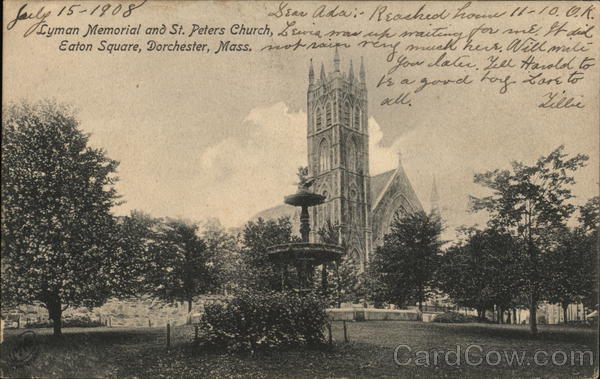 July 15-1908
Lyman Memorial and St. Peters Church,
Eaton Square, Dorchester, Mass.
Dear Ada:- Reached home 11-10, O.K.
was up waiting for me. It did
not rain very much here. Will write
you later. Tell Harold to
be a good boy. Love to
all.
Tillie
CardCow.com